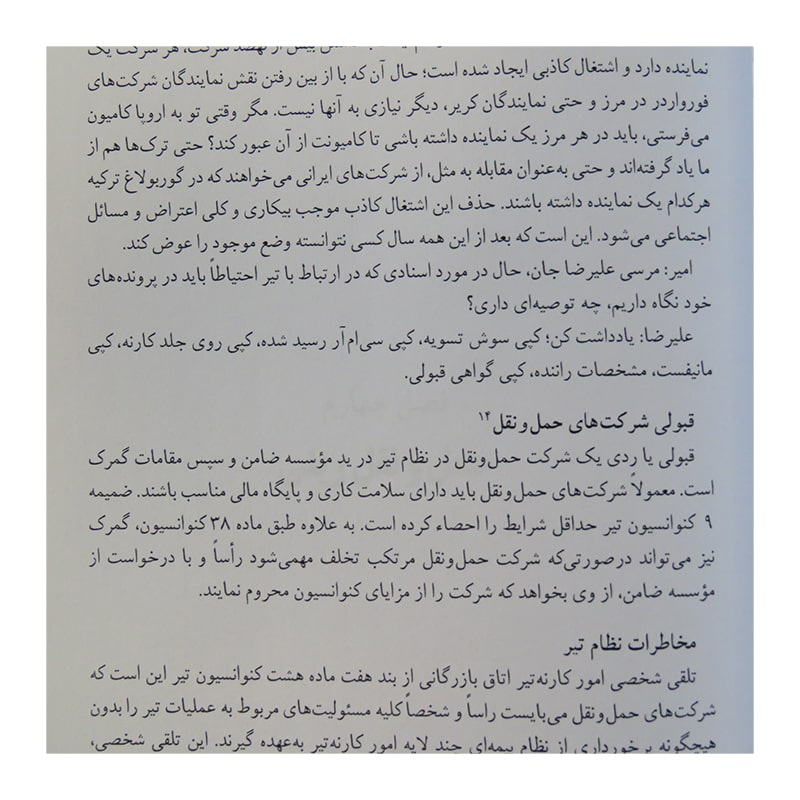 بیش از نهصد شرکت، هر شرکت یک
نماینده دارد و اشتغال کاذبی ایجاد شده است؛ حال آن که با از بین رفتن نقش نمایندگان شرکت‌های
فورواردر در مرز و حتی نمایندگان کریر، دیگر نیازی به آنها نیست. مگر وقتی تو به اروپا کامیون
می‌فرستی، باید در هر مرز یک نماینده داشته باشی تا کامیونت از آن عبور کند؟ حتی ترک‌ها هم از
ما یاد گرفته‌اند و حتی به‌عنوان مقابله به مثل، از شرکت‌های ایرانی می‌خواهند که در گوربولاغ ترکیه
هرکدام یک نماینده داشته باشند. حذف این اشتغال کاذب موجب بیکاری و کلی اعتراض و مسائل
اجتماعی می‌شود. این است که بعد از این همه سال کسی نتوانسته وضع موجود را عوض کند.
امیر: مرسی علیرضا جان، حال در مورد اسنادی که در ارتباط با تیر احتیاطاً باید در پرونده‌های
خود نگاه داریم، چه توصیه‌ای داری؟
علیرضا: یادداشت کن؛ کپی سوش تسویه، کپی سی‌ام‌آر رسید شده، کپی روی جلد کارنه، کپی
مانیفست، مشخصات راننده، کپی گواهی قبولی.
قبولی شرکت‌های حمل‌ونقل۱۴
قبولی یا ردی یک شرکت حمل‌ونقل در نظام تیر در ید مؤسسه ضامن و سپس مقامات گمرک
است. معمولاً شرکت‌های حمل‌ونقل باید دارای سلامت کاری و پایگاه مالی مناسب باشند. ضمیمه
۹ کنوانسیون تیر حداقل شرایط را احصاء کرده است. به علاوه طبق ماده ۳۸ کنوانسیون، گمرک
نیز می‌تواند درصورتی‌که شرکت حمل‌ونقل مرتکب تخلف مهمی‌شود رأساً و با درخواست از
مؤسسه ضامن، از وی بخواهد که شرکت را از مزایای کنوانسیون محروم نمایند.
مخاطرات نظام تیر
تلقی شخصی امور کارنه‌تیر اتاق بازرگانی از بند هفت ماده هشت کنوانسیون تیر این است که
شرکت‌های حمل‌ونقل می‌بایست راساً و شخصاً کلیه مسئولیت‌های مربوط به عملیات تیر را بدون
هیچگونه برخورداری از نظام بیمه‌ای چند لایه امور کارنه‌تیر به‌عهده گیرند. این تلقی شخصی،